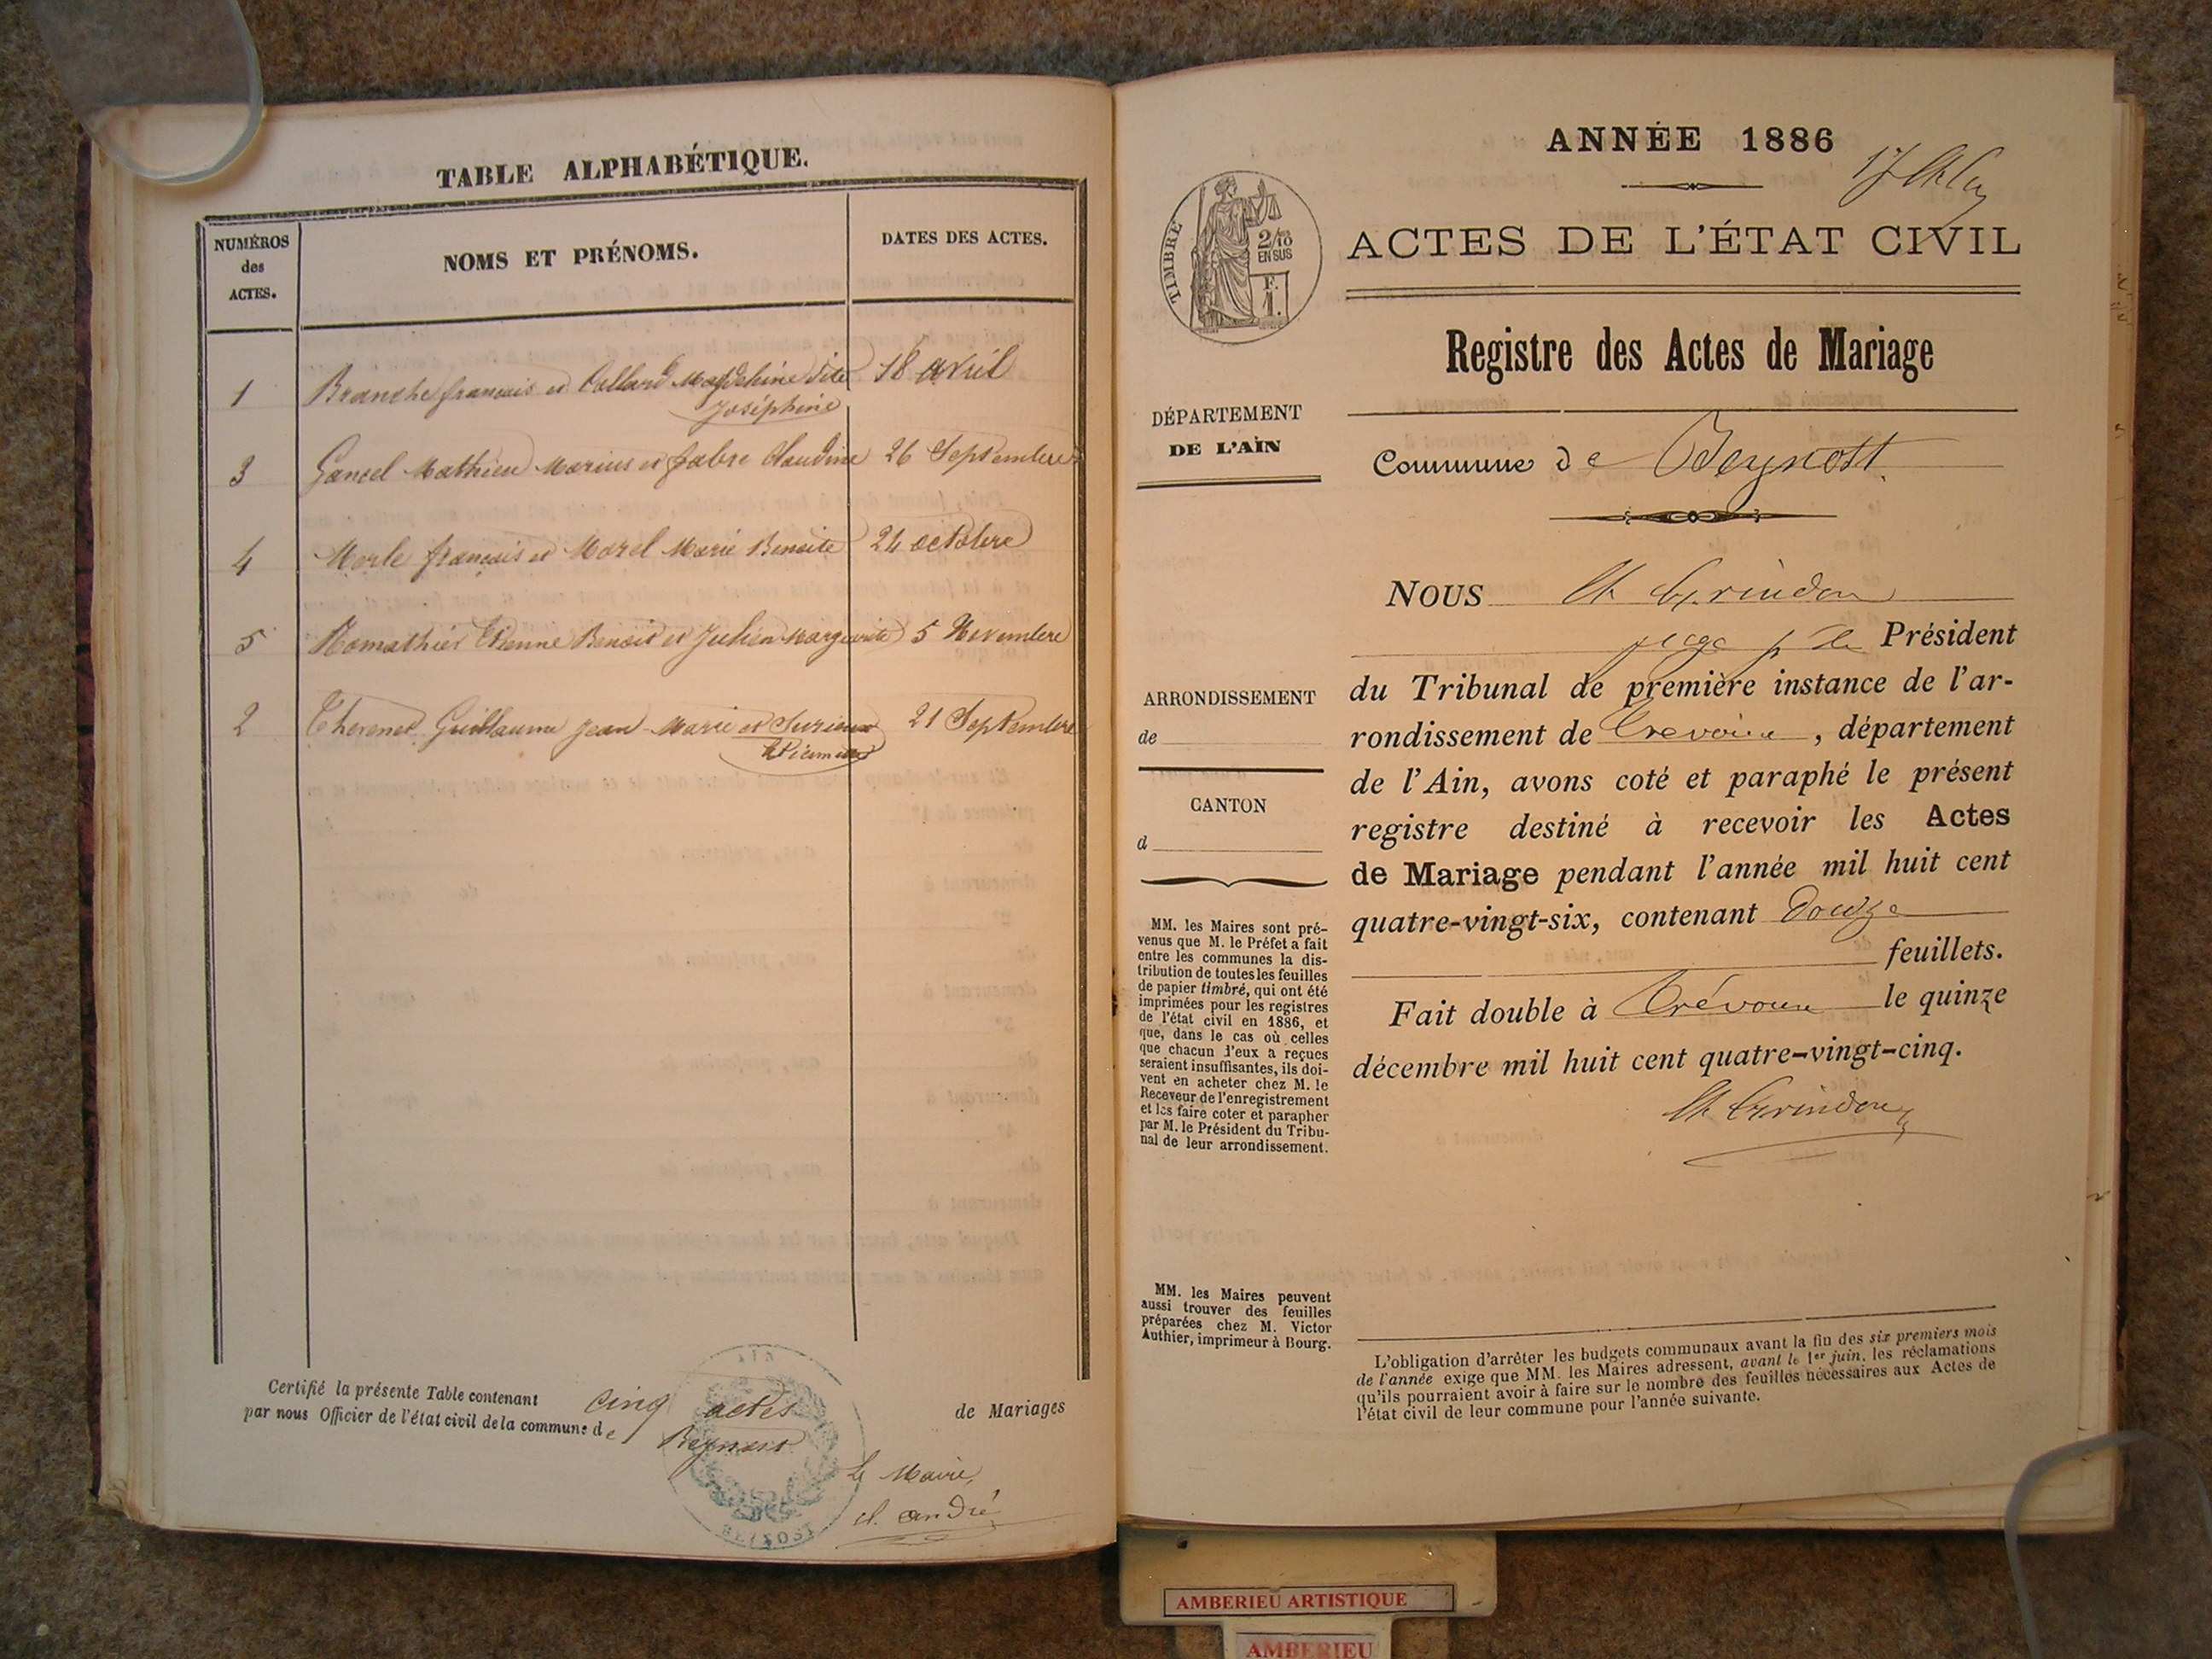 TABLE ALPHABÉTIQUE.
NUMÉROS
des
ACTES.
NOMS ET PRÉNOMS.
DATES DES ACTES.
1 Branche françois et Collard Magdeleine dite 18 avril
Joséphine
3 Gancel Mathieu Marius et fabre Claudine 26 Septembre
4 Morle françois et Morel Marie Benoite 24 octobre
5 Romathier Etienne Benoit et Julien Marguerite 5 Novembre
2 Thevenet Guillaume Jean-Marie et 21 Septembre
Certifié la présente Table contenant cinq actes de Mariages
par nous Officier de l'état civil de la commune de Beynost
Le Maire,
cl. andré
ANNÉE 1886
TIMBRE
2/10
EN SUS
F.
1.
ACTES DE L'ÉTAT CIVIL
Registre des Actes de Mariage
DÉPARTEMENT
DE L'AIN
Commune de Beynost
NOUS Ch Grindon
juge p le Président
du Tribunal de première instance de l'ar-
rondissement de Trévoux, département
de l'Ain, avons coté et paraphé le présent
registre destiné à recevoir les Actes
de Mariage pendant l'année mil huit cent
quatre-vingt-six, contenant douze
feuillets.
Fait double à Trévoux le quinze
décembre mil huit cent quatre-vingt-cinq.
Ch Grindon
ARRONDISSEMENT
de
CANTON
d
MM. les Maires sont pré-
venus que M. le Préfet a fait
entre les communes la dis-
tribution de toutes les feuilles
de papier timbré, qui ont été
imprimées pour les registres
de l'état civil en 1886, et
que, dans le cas où celles
que chacun d'eux a reçues
seraient insuffisantes, ils doi-
vent en acheter chez M. le
Receveur de l'enregistrement
et les faire coter et parapher
par M. le Président du Tribu-
nal de leur arrondissement.
MM. les Maires peuvent
aussi trouver des feuilles
préparées chez M. Victor
Authier, imprimeur à Bourg.
L'obligation d'arrêter les budgets communaux avant la fin des six premiers mois
de l'année exige que MM. les Maires adressent, avant le 1er juin, les réclamations
qu'ils pourraient avoir à faire sur le nombre des feuilles nécessaires aux Actes de
l'état civil de leur commune pour l'année suivante.
AMBERIEU ARTISTIQUE
AMBERIEU